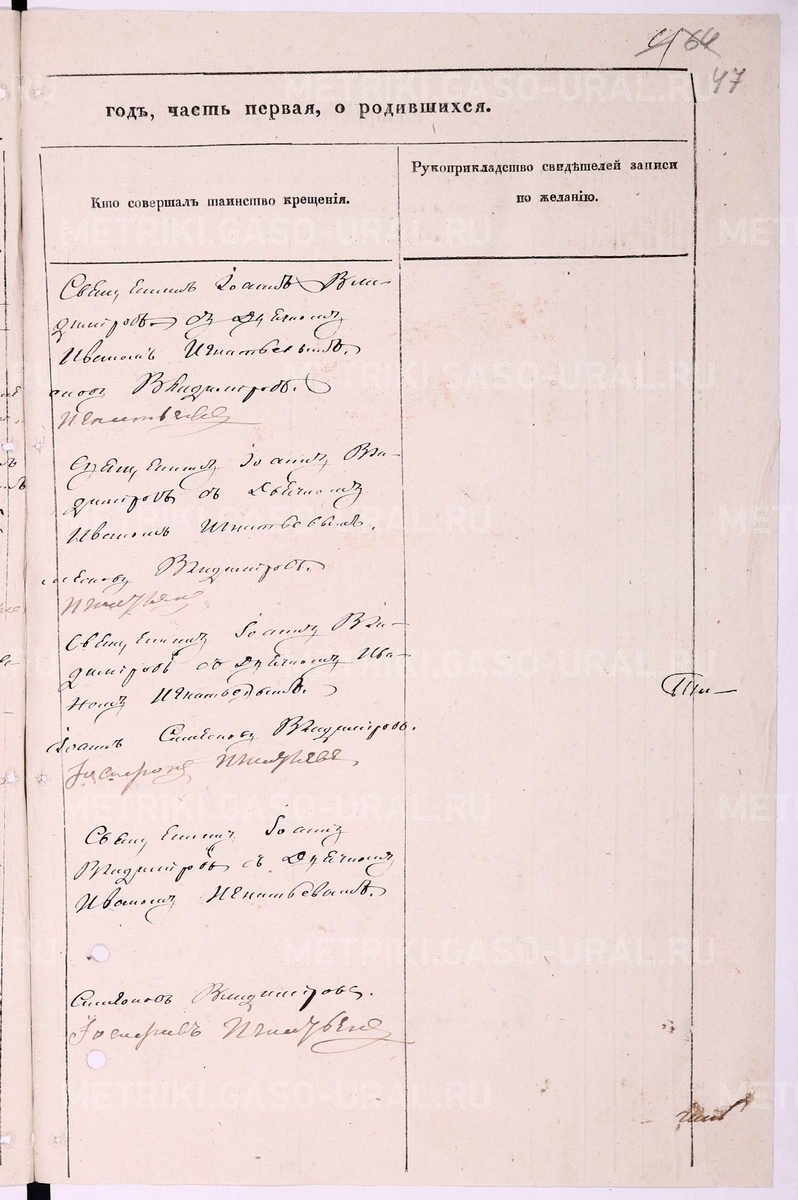 64
47
годъ, часть первая, о родившихся.
Кто совершалъ таинство крещенія.
Рукоприкладство свидѣтелей записи
по желанію.
Священникъ Іоаннъ Вла-
димировъ съ Дьячкомъ
Иваномъ Игнатьевымъ.
Владимировъ.
Игнатьевъ
Священникъ Іоаннъ Вла-
димировъ съ Дьячкомъ
Иваномъ Игнатьевымъ.
Владимировъ.
Священникъ Іоаннъ Вла-
димировъ съ Дьячкомъ Ива-
номъ Игнатьевымъ.
Іоаннъ Симеоновъ Владимировъ.
Священникъ Іоаннъ
Владимировъ съ Дьячкомъ
Иваномъ Игнатьевымъ.
Симеоновъ Владимировъ.
METRIKI.GASO-URAL.RU